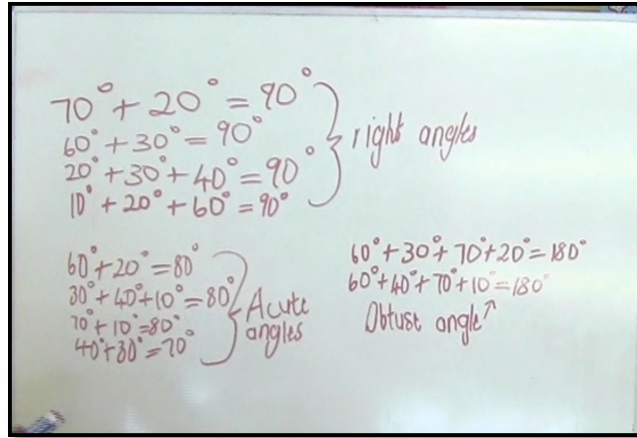 70° + 20° = 90°
60° + 30° = 90°
20° + 30° + 40° = 90°
10° + 20° + 60° = 90°
right angles
60° + 20° = 80°
30° + 40° + 10° = 80°
70° + 10° = 80°
40° + 30° = 70°
Acute
angles
60° + 30° + 70° + 20° = 180°
60° + 40° + 70° + 10° = 180°
Obtust angle